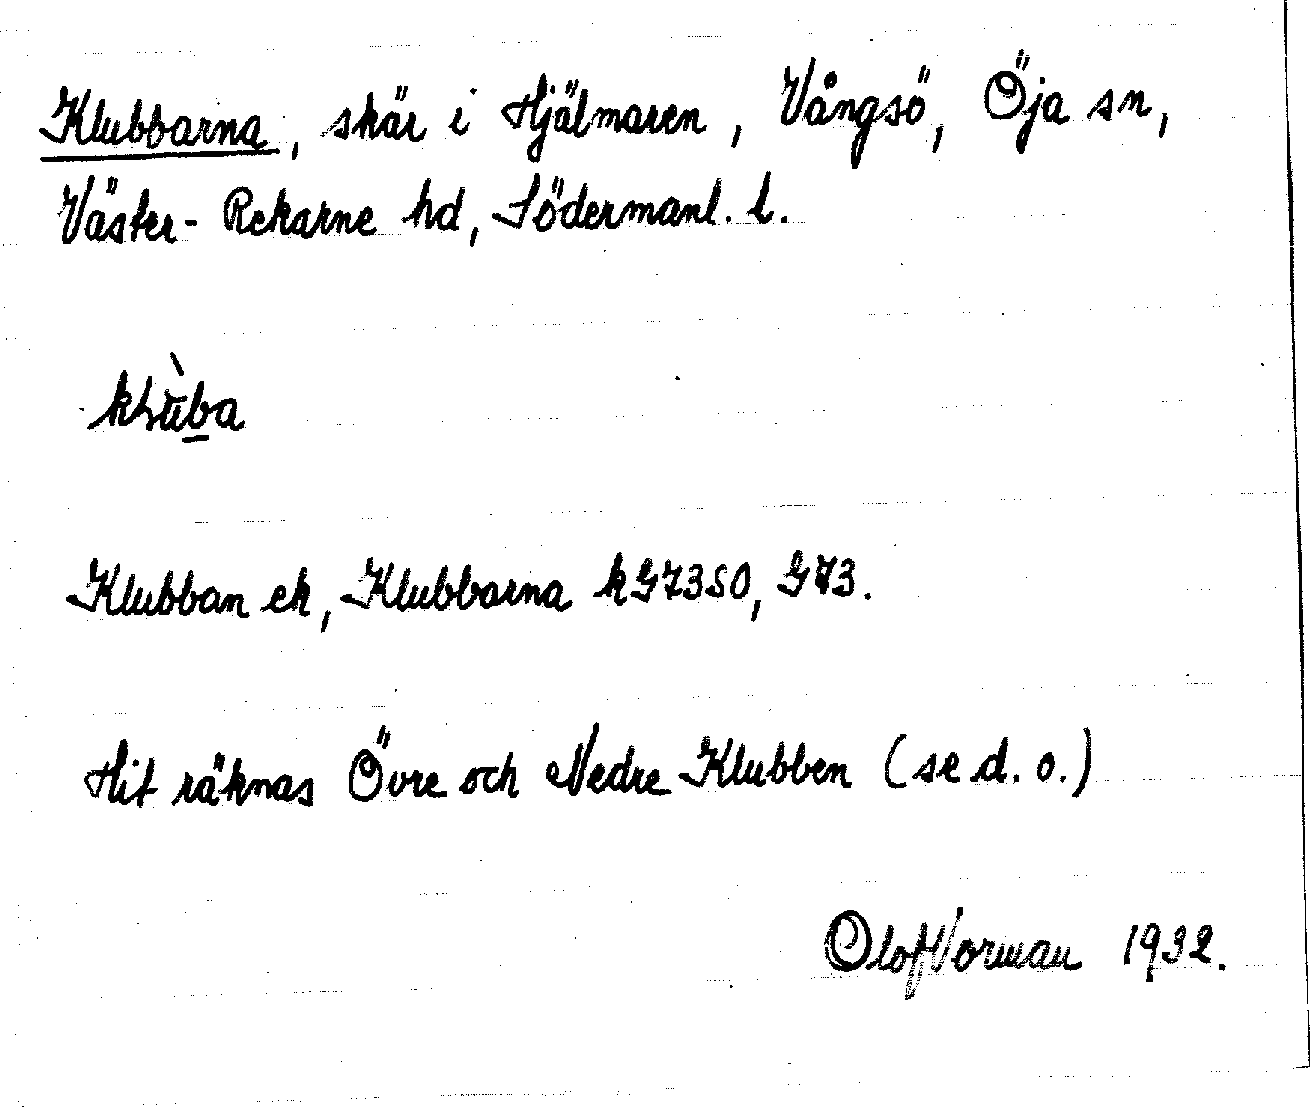 Klubbarna, skär i Hjälmaren, Vångsö, Öja sn,
Väster-Rekarne hd, Södermanl. l.
Klubban ek, Klubbarna kG73SO, G73.
Hit räknas Övre och Nedre Klubben (se d. o.)
Olof Norman 1932.